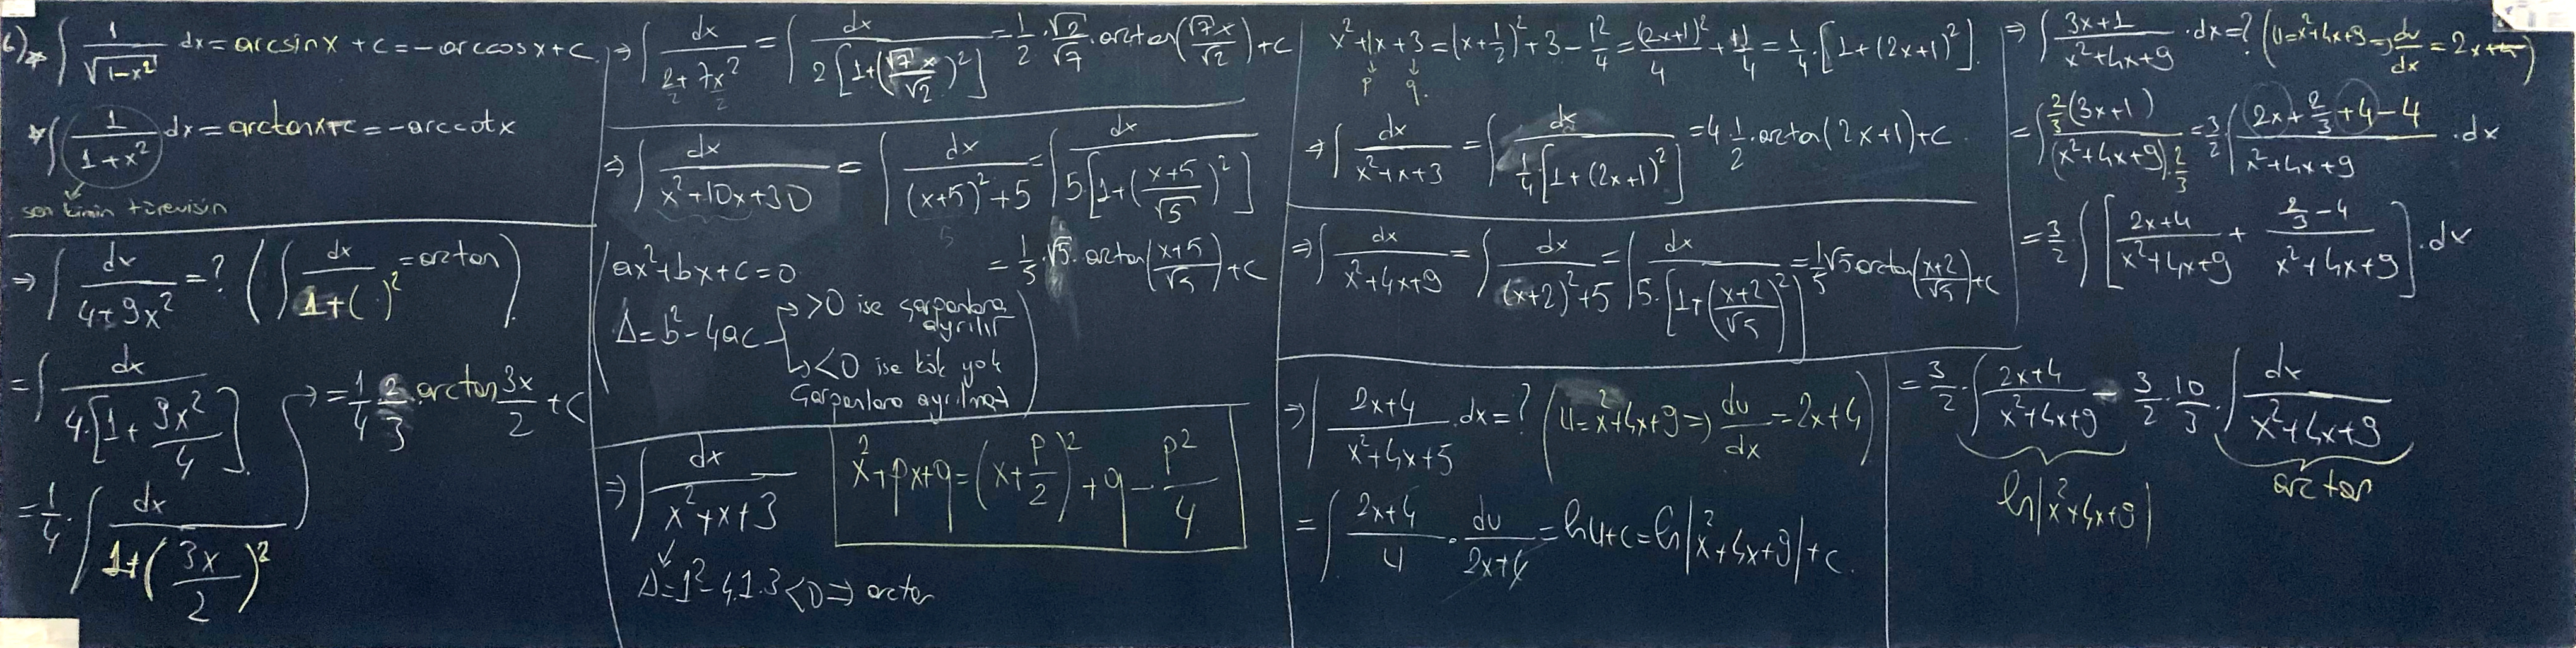 6) * ∫ 1/√(1-x²) dx = arcsinx + c = -arccosx + c.
* ∫ 1/(1+x²) dx = arctanx+c = -arccotx
sen kimin türevisin
⇒ ∫ dx/(4+9x²) = ? ( ∫ dx/(1+( )²) = arctan )
= ∫ dx/(4.[1+9x²/4])
= 1/4 . ∫ dx/(1+(3x/2)²)
→ = 1/4 . 2/3 . arctan 3x/2 + c
⇒ ∫ dx/(2+7x²) = ∫ dx/(2[1+(√7x/√2)²]) = 1/2 . √2/√7 . arctan(√7x/√2) + c
⇒ ∫ dx/(x²+10x+30) = ∫ dx/((x+5)²+5) = ∫ dx/(5[1+((x+5)/√5)²])
= 1/5 . √5 . arctan((x+5)/√5) + c
ax²+bx+c=0
Δ=b²-4ac → >0 ise çarpanlara ayrılır
↳ <0 ise kök yok
Çarpanlara ayrılmaz
⇒ ∫ dx/(x²+x+3)
x²+px+q = (x+p/2)² + q - p²/4
Δ=1²-4.1.3<0 ⇒ arctan
x²+1x+3 = (x+1/2)² + 3 - 1²/4 = (2x+1)²/4 + 11/4 = 1/4 . [1+(2x+1)²].
p q.
⇒ ∫ dx/(x²+x+3) = ∫ dx/(1/4[1+(2x+1)²]) = 4 . 1/2 . arcta(2x+1)+c.
⇒ ∫ dx/(x²+4x+9) = ∫ dx/((x+2)²+5) = ∫ dx/(5.[1+((x+2)/√5)²]) = 1/5 √5 arctan((x+2)/√5)+c
⇒ ∫ (2x+4)/(x²+4x+5) . dx = ? ( u=x²+4x+9 ⇒ du/dx = 2x+4 )
= ∫ (2x+4)/u . du/(2x+4) = ln u+c = ln|x²+4x+9| + c.
⇒ ∫ (3x+1)/(x²+4x+9) . dx = ? ( u=x²+4x+9 ⇒ du/dx = 2x+4 )
= ∫ (2/3 (3x+1))/((x²+4x+9) . 2/3) = 3/2 ∫ (2x+2/3+4-4)/(x²+4x+9) . dx
= 3/2 . ∫ [ (2x+4)/(x²+4x+9) + (2/3-4)/(x²+4x+9) ] . dx
= 3/2 . ∫ (2x+4)/(x²+4x+9) - 3/2 . 10/3 . ∫ dx/(x²+4x+9)
ln|x²+4x+9|
arctan